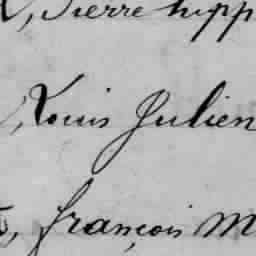 , Pierre hipp
, Louis Julien
, françois M